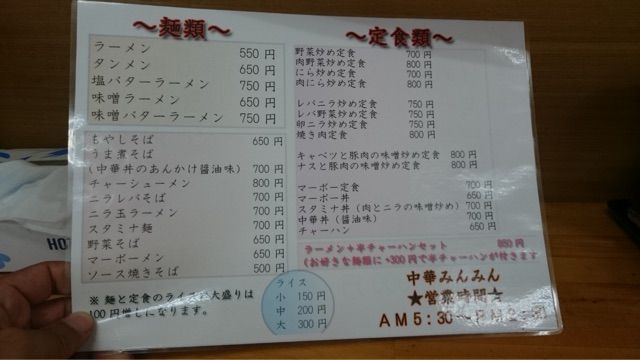 ～麺類～
ラーメン 550円
タンメン 650円
塩バターラーメン 750円
味噌ラーメン 650円
味噌バターラーメン 750円
もやしそば 650円
うま煮そば
(中華丼のあんかけ醤油味) 700円
チャーシューメン 800円
ニラレバそば 700円
ニラ玉ラーメン 700円
スタミナ麺 700円
野菜そば 650円
マーボーメン 650円
ソース焼きそば 500円
※ 麺と定食のライス大盛りは
100円増しになります。
ライス
小 150円
中 200円
大 300円
～定食類～
野菜炒め定食 700円
肉野菜炒め定食 800円
にら炒め定食 700円
肉にら炒め定食 800円
レバニラ炒め定食 750円
レバ野菜炒め定食 750円
卵ニラ炒め定食 750円
焼き肉定食 800円
キャベツと豚肉の味噌炒め定食 800円
ナスと豚肉の味噌炒め定食 800円
マーボー定食 700円
マーボー丼 650円
スタミナ丼(肉とニラの味噌炒め) 700円
中華丼(醤油味) 700円
チャーハン 650円
ラーメン+半チャーハンセット 850円
(お好きな麺類に+300円で半チャーハンが付きます
中華みんみん
★営業時間☆
AM5:30～
HOT